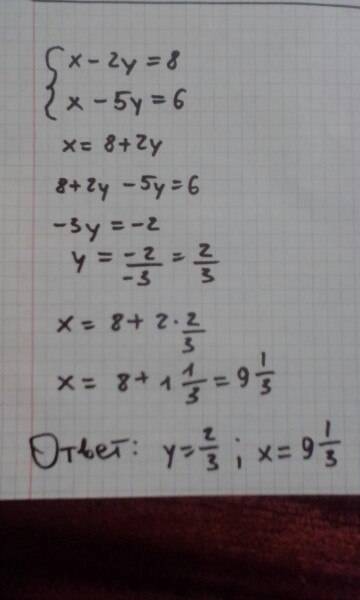 { x - 2y = 8
x - 5y = 6
x = 8 + 2y
8 + 2y - 5y = 6
-3y = -2
y = -2/-3 = 2/3
x = 8 + 2 · 2/3
x = 8 + 1 1/3 = 9 1/3
Ответ: y = 2/3 ; x = 9 1/3